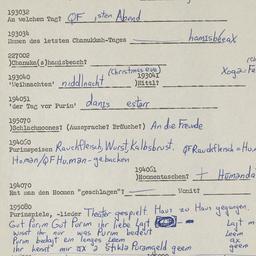 193032
An welchen Tag? QF isten Abend
193034
Namen des letzten Chanukkah-Tages hamisbeeax
227002
)Chanuka(s)haniabesch?
(Christmas eve)
193040 193041
'Weihnachten' niddlnacht )Hitl?
194051
'der Tag vor Purim' danis estar
195070
)Schlachmones? (Aussprache? Bräuche?) An die Freude
194060
Purimspeisen Rauchfleisch, Wurst, Kalbsbrust. QF Rauchfleisch = Hu
Homan/QF Human-gebacken
194061
)Homentaschen? + Humanda
194070
Hat man den Hoomen "geschlagen"? Womit?
195080
Purimspiele, -lieder Theater gespielt Haus zu Haus gegangen.
Gut Purim Gut Purim ihr liebe Lait
wisst ihr nur was Purim bedeit
Purim bedajt en langes Leem
ihr kennt mir ax a Stikla Purimgeld geem
Lajt
Leem
ax
geem